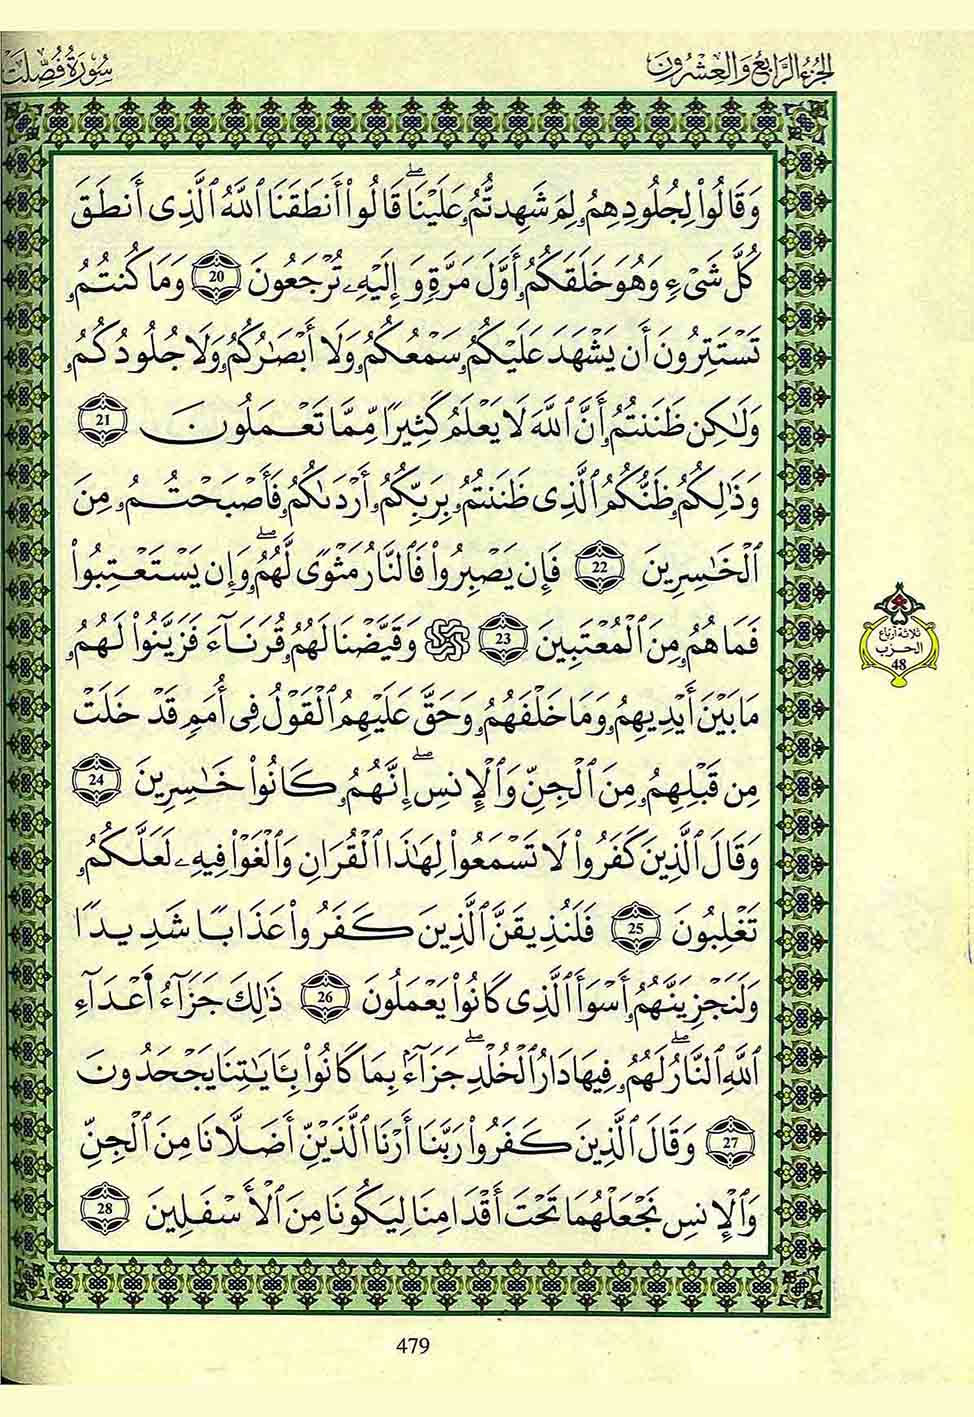 الجزء الرابع والعشرون
سورة فصلت
وَقَالُواْ لِجُلُودِهِمُۥ لِمَ شَهِدتُّمُۥ عَلَيْنَاۖ قَالُواْ أَنطَقَنَا اَ۬للَّهُ اُ۬لَّذِى أَنطَقَ
كُلَّ شَىْءٖ وَهُوَ خَلَقَكُمُۥ أَوَّلَ مَرَّةٖ وَإِلَيْهِۦ تُرْجَعُونَ 20 وَمَا كُنتُمُۥ
تَسْتَتِرُونَ أَن يَشْهَدَ عَلَيْكُمُۥ سَمْعُكُمُۥ وَلَا أَبْصَٰرُكُمُۥ وَلَا جُلُودُكُمُۥ
وَلَٰكِن ظَنَنتُمُۥ أَنَّ اَ۬للَّهَ لَا يَعْلَمُ كَثِيرٗا مِّمَّا تَعْمَلُونَ 21
وَذَٰلِكُمُۥ ظَنُّكُمُ اُ۬لَّذِى ظَنَنتُمُۥ بِرَبِّكُمُۥ أَرْدَىٰكُمُۥ فَأَصْبَحْتُمُۥ مِنَ
اَ۬لْخَٰسِرِينَ 22 فَإِن يَصْبِرُواْ فَالنَّارُ مَثْوٗى لَّهُمُۥۖ وَإِن يَسْتَعْتِبُواْ
فَمَا هُمُۥ مِنَ اَ۬لْمُعْتَبِينَ 23 وَقَيَّضْنَا لَهُمُۥ قُرَنَآءَ فَزَيَّنُواْ لَهُمُۥ
مَا بَيْنَ أَيْدِيهِمُۥ وَمَا خَلْفَهُمُۥ وَحَقَّ عَلَيْهِمُ اُ۬لْقَوْلُ فِى أُمَمٖ قَدْ خَلَتْ
مِن قَبْلِهِمُۥ مِنَ اَ۬لْجِنِّ وَالْإِنسِۖ إِنَّهُمُۥ كَانُواْ خَٰسِرِينَ 24
وَقَالَ اَ۬لَّذِينَ كَفَرُواْ لَا تَسْمَعُواْ لِهَٰذَا اَ۬لْقُرَانِ وَالْغَوْاْ فِيهِۦ لَعَلَّكُمُۥ
تَغْلِبُونَ 25 فَلَنُذِيقَنَّ اَ۬لَّذِينَ كَفَرُواْ عَذَابٗا شَدِيدٗا
وَلَنَجْزِيَنَّهُمُۥ أَسْوَأَ اَ۬لَّذِى كَانُواْ يَعْمَلُونَ 26 ذَٰلِكَ جَزَآءُ أَعْدَآءِ
اِ۬للَّهِ اِ۬لنَّارُۖ لَهُمُۥ فِيهَا دَارُ اُ۬لْخُلْدِۖ جَزَآءَۢ بِمَا كَانُواْ بِـَٔايَٰتِنَا يَجْحَدُونَ
27 وَقَالَ اَ۬لَّذِينَ كَفَرُواْ رَبَّنَا أَرْنَا اَ۬لَّذَيْنِّ أَضَلَّانَا مِنَ اَ۬لْجِنِّ
وَالْإِنسِ نَجْعَلْهُمَا تَحْتَ أَقْدَامِنَا لِيَكُونَا مِنَ اَ۬لْأَسْفَلِينَ 28
ثلاثة أرباع
الحزب
48
479